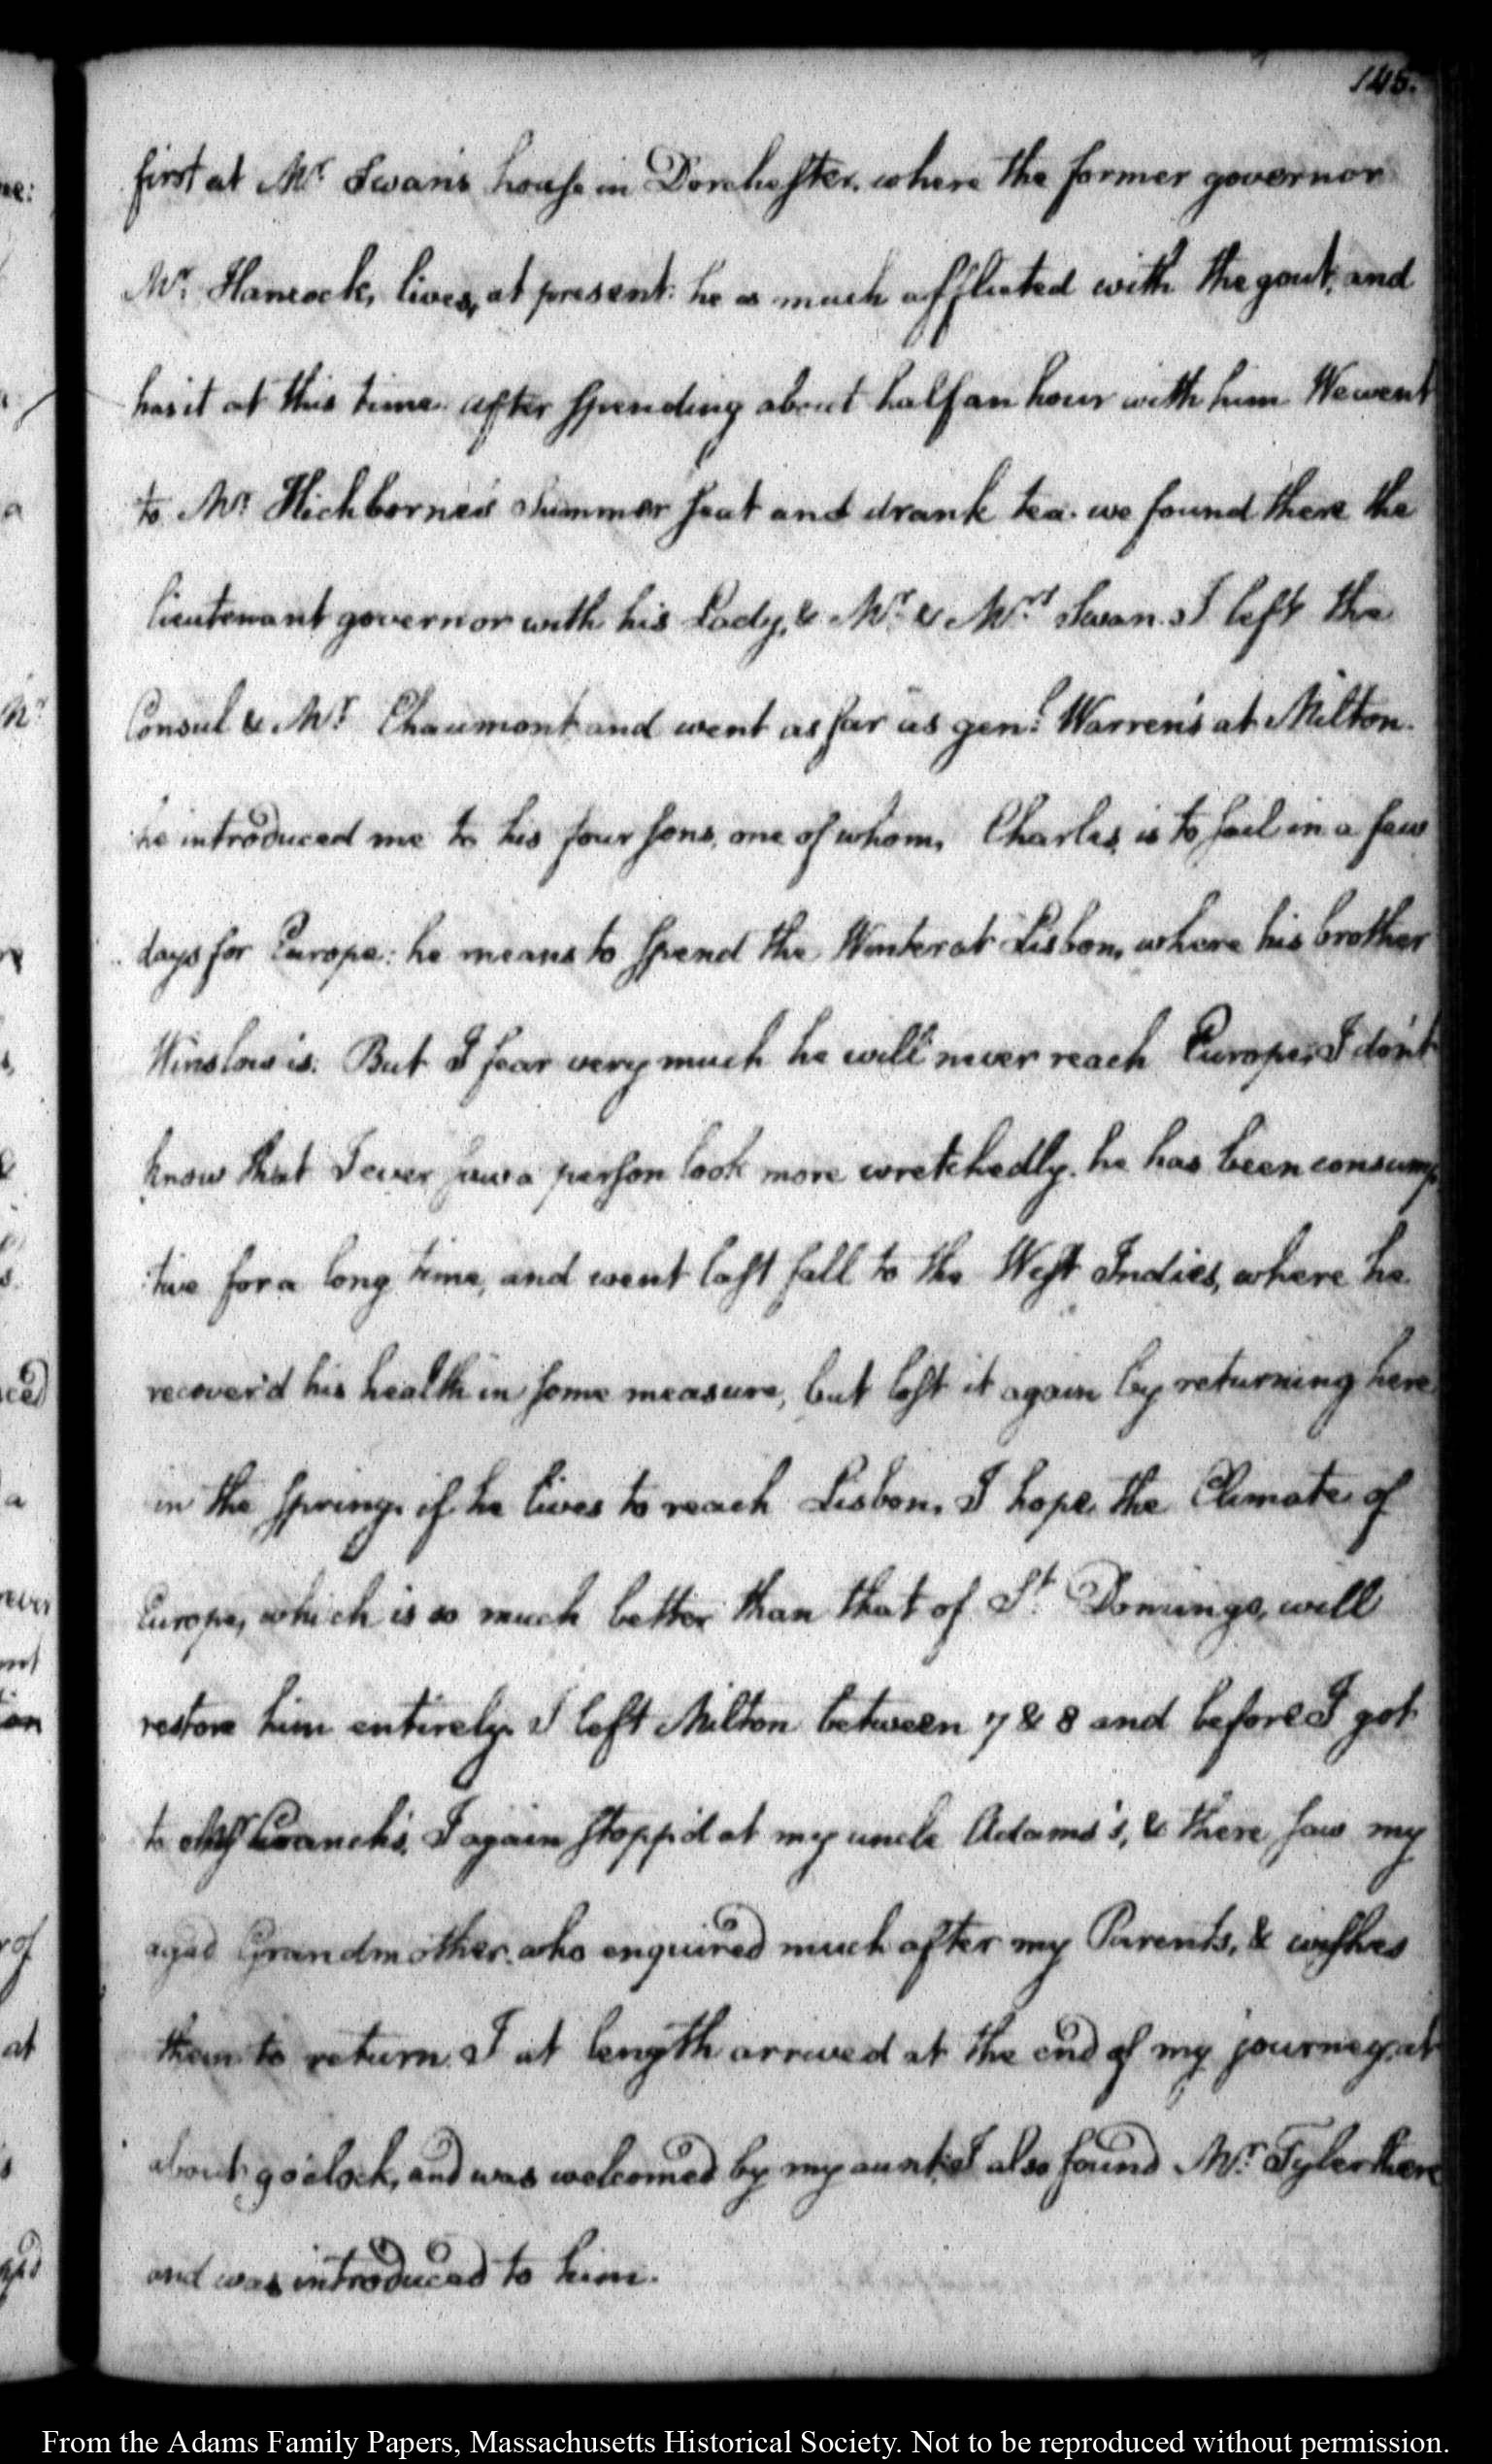 145.
first at Mr. Swan's house in Dorchester, where the former governor
Mr. Hancock, lives, at present: he is much afflicted with the gout, and
has it at this time. after spending about half an hour with him We went
to Mr. Hichborne's Summer seat and drank tea. we found there the
lieutenant governor with his Lady, & Mr. & Mrs. Swan. I left the
Consul & Mr. Chaumont and went as far as genl. Warren's at Milton.
he introduced me to his four sons, one of whom, Charles, is to sail in a few
days for Europe: he means to spend the Winter at Lisbon, where his brother
Winslow is. But I fear very much he will never reach Europe, I don't
know that I ever saw a person look more wretchedly. he has been consump-
tive for a long time, and went last fall to the West Indies, where he
recover'd his health in some measure, but lost it again by returning here
in the spring. if he lives to reach Lisbon, I hope the Climate of
Europe, which is so much better than that of St. Domingo, will
restore him entirely. I left Milton between 7 & 8 and before I got
to Cranch's, I again stopp'd at my uncle Adams's, & there saw my
aged Grandmother, who enquired much after my Parents, & wishes
them to return. I at length arrived at the end of my journey, at
about 9 o'clock, and was welcomed by my aunt. I also found Mr. Tyler there
and was introduced to him.
From the Adams Family Papers, Massachusetts Historical Society. Not to be reproduced without permission.